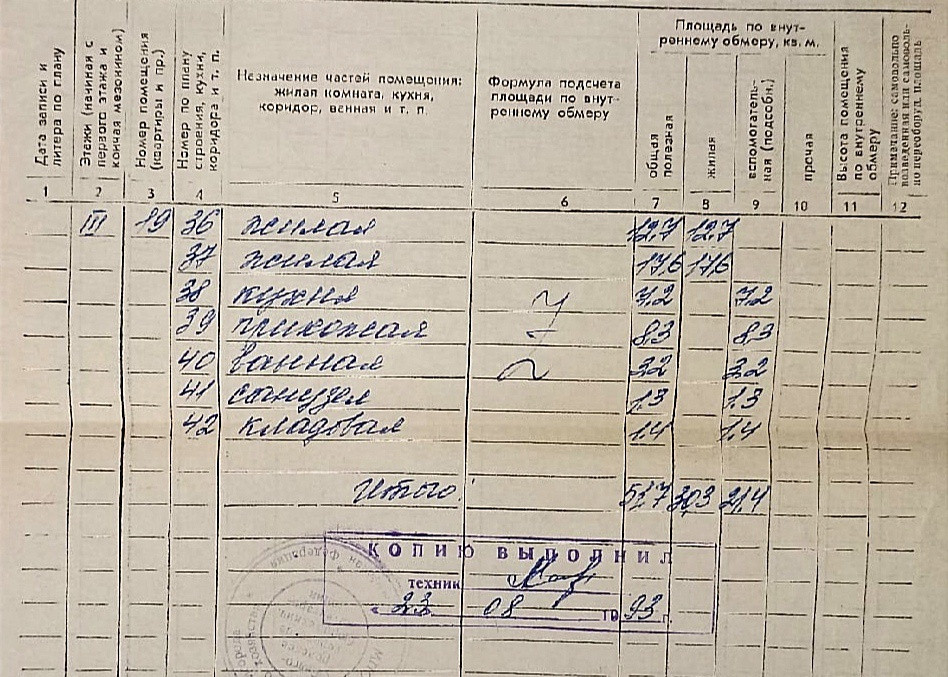 Дата записи и литера по плану
Этажи (начиная с первого этажа и кончая мезонином)
Номер помещения (квартиры и пр.)
Номер по плану строения, кухни, коридора и т. п.
Назначение частей помещения:
жилая комната, кухня,
коридор, ванная и т. п.
Формула подсчета
площади по внут-
реннему обмеру
Площадь по внут-
реннему обмеру, кв. м.
общая полезная
жилая
вспомогатель-
ная (подсобн.)
прочая
Высота помещения по внутреннему обмеру
Примечание: самовольно возведенная или самоволь-
но переоборуд. площадь
1 2 3 4 5 6 7 8 9 10 11 12
III 19 36 жилая 12,7 12,7
37 жилая 17,6 17,6
38 кухня 7,2 7,2
39 прихожая 8,3 8,3
40 ванная 3,2 3,2
41 санузел 1,3 1,3
42 кладовая 1,4 1,4
Итого 51,7 30,3 21,4
КОПИЮ ВЫПОЛНИЛ
техник
« 23 08 19 93 г.